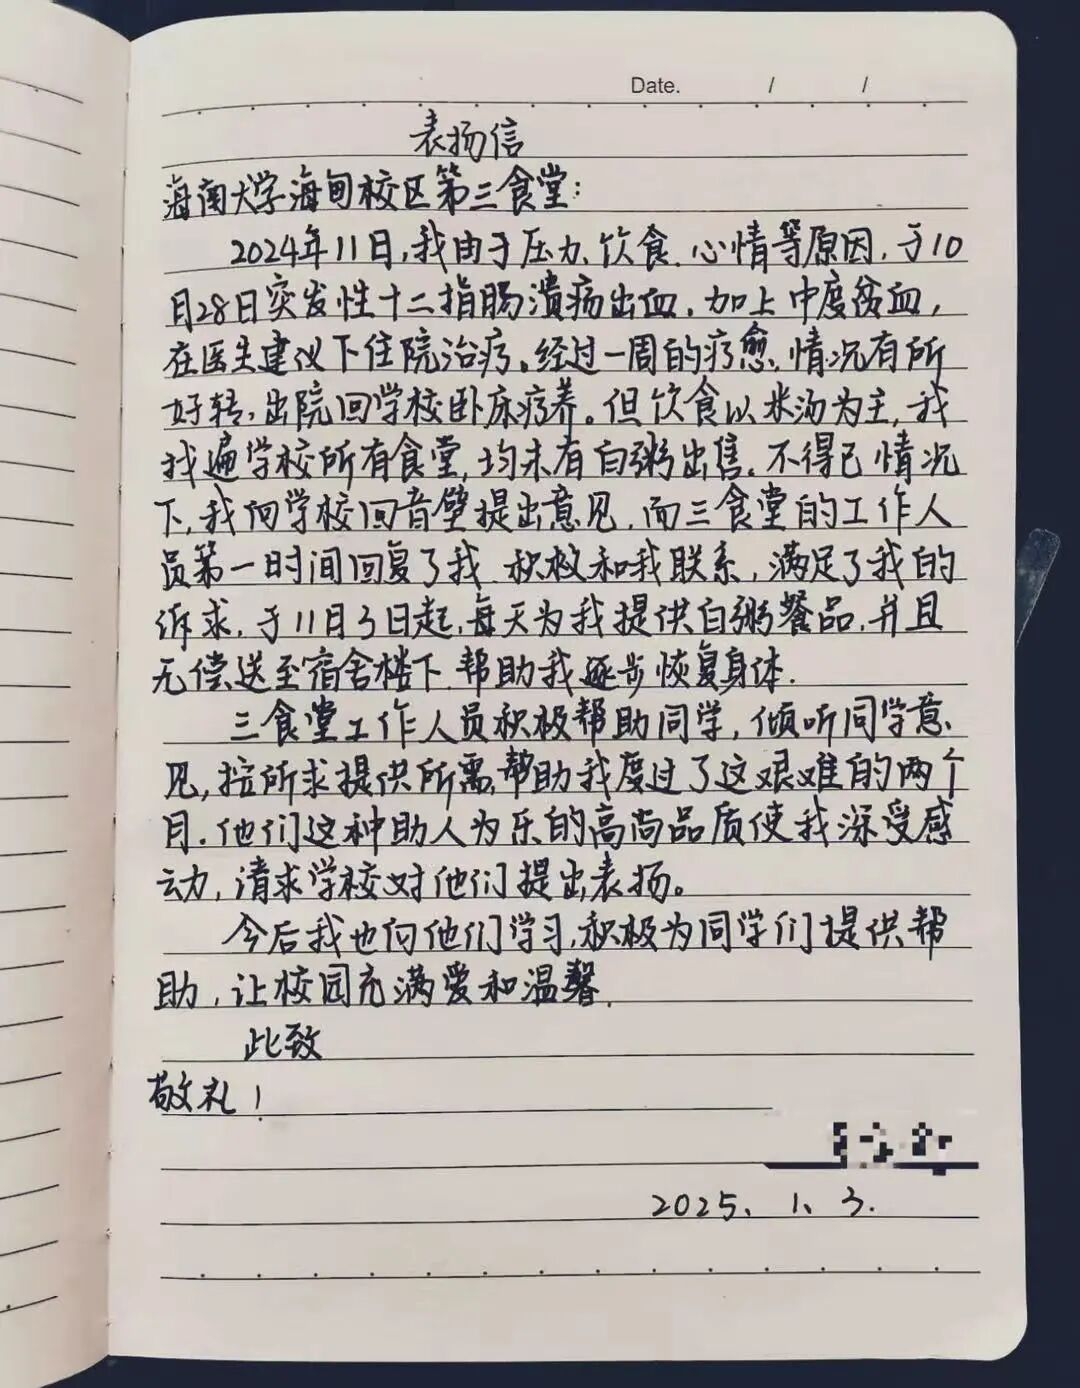 Date. / /
表扬信
海南大学海甸校区第三食堂:
2024年11日,我由于压力、饮食、心情等原因,于10
月28日突发性十二指肠溃疡出血,加上中度贫血,
在医生建议下住院治疗。经过一周的疗愈,情况有所
好转,出院回学校卧床疗养。但饮食以米汤为主,我
找遍学校所有食堂,均未有白粥出售。不得已情况
下,我向学校回音壁提出意见,而三食堂的工作人
员第一时间回复了我,积极和我联系,满足了我的
诉求,于11月3日起,每天为我提供白粥餐品,并且
无偿送至宿舍楼下,帮助我逐步恢复身体.
三食堂工作人员积极帮助同学,倾听同学意
见,按所求提供所需,帮助我度过了这艰难的两个
月.他们这种助人为乐的高尚品质使我深受感
动,请求学校对他们提出表扬。
今后我也向他们学习,积极为同学们提供帮
助,让校园充满爱和温馨.
此致
敬礼!
2025、1、3.